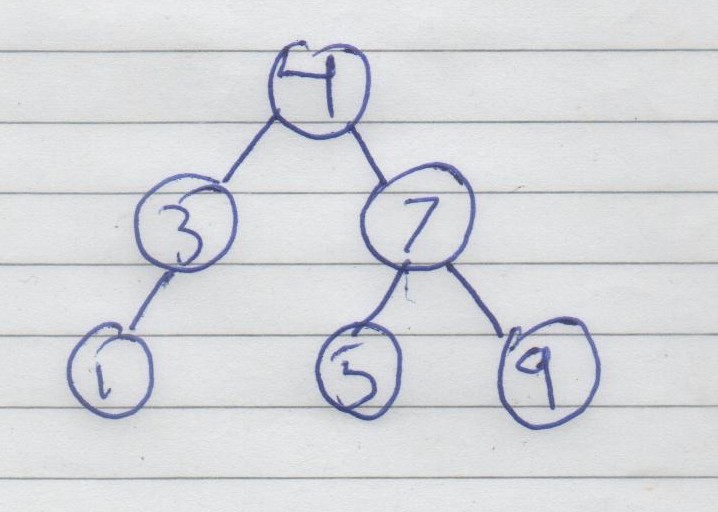 4
3 7
1 5 9